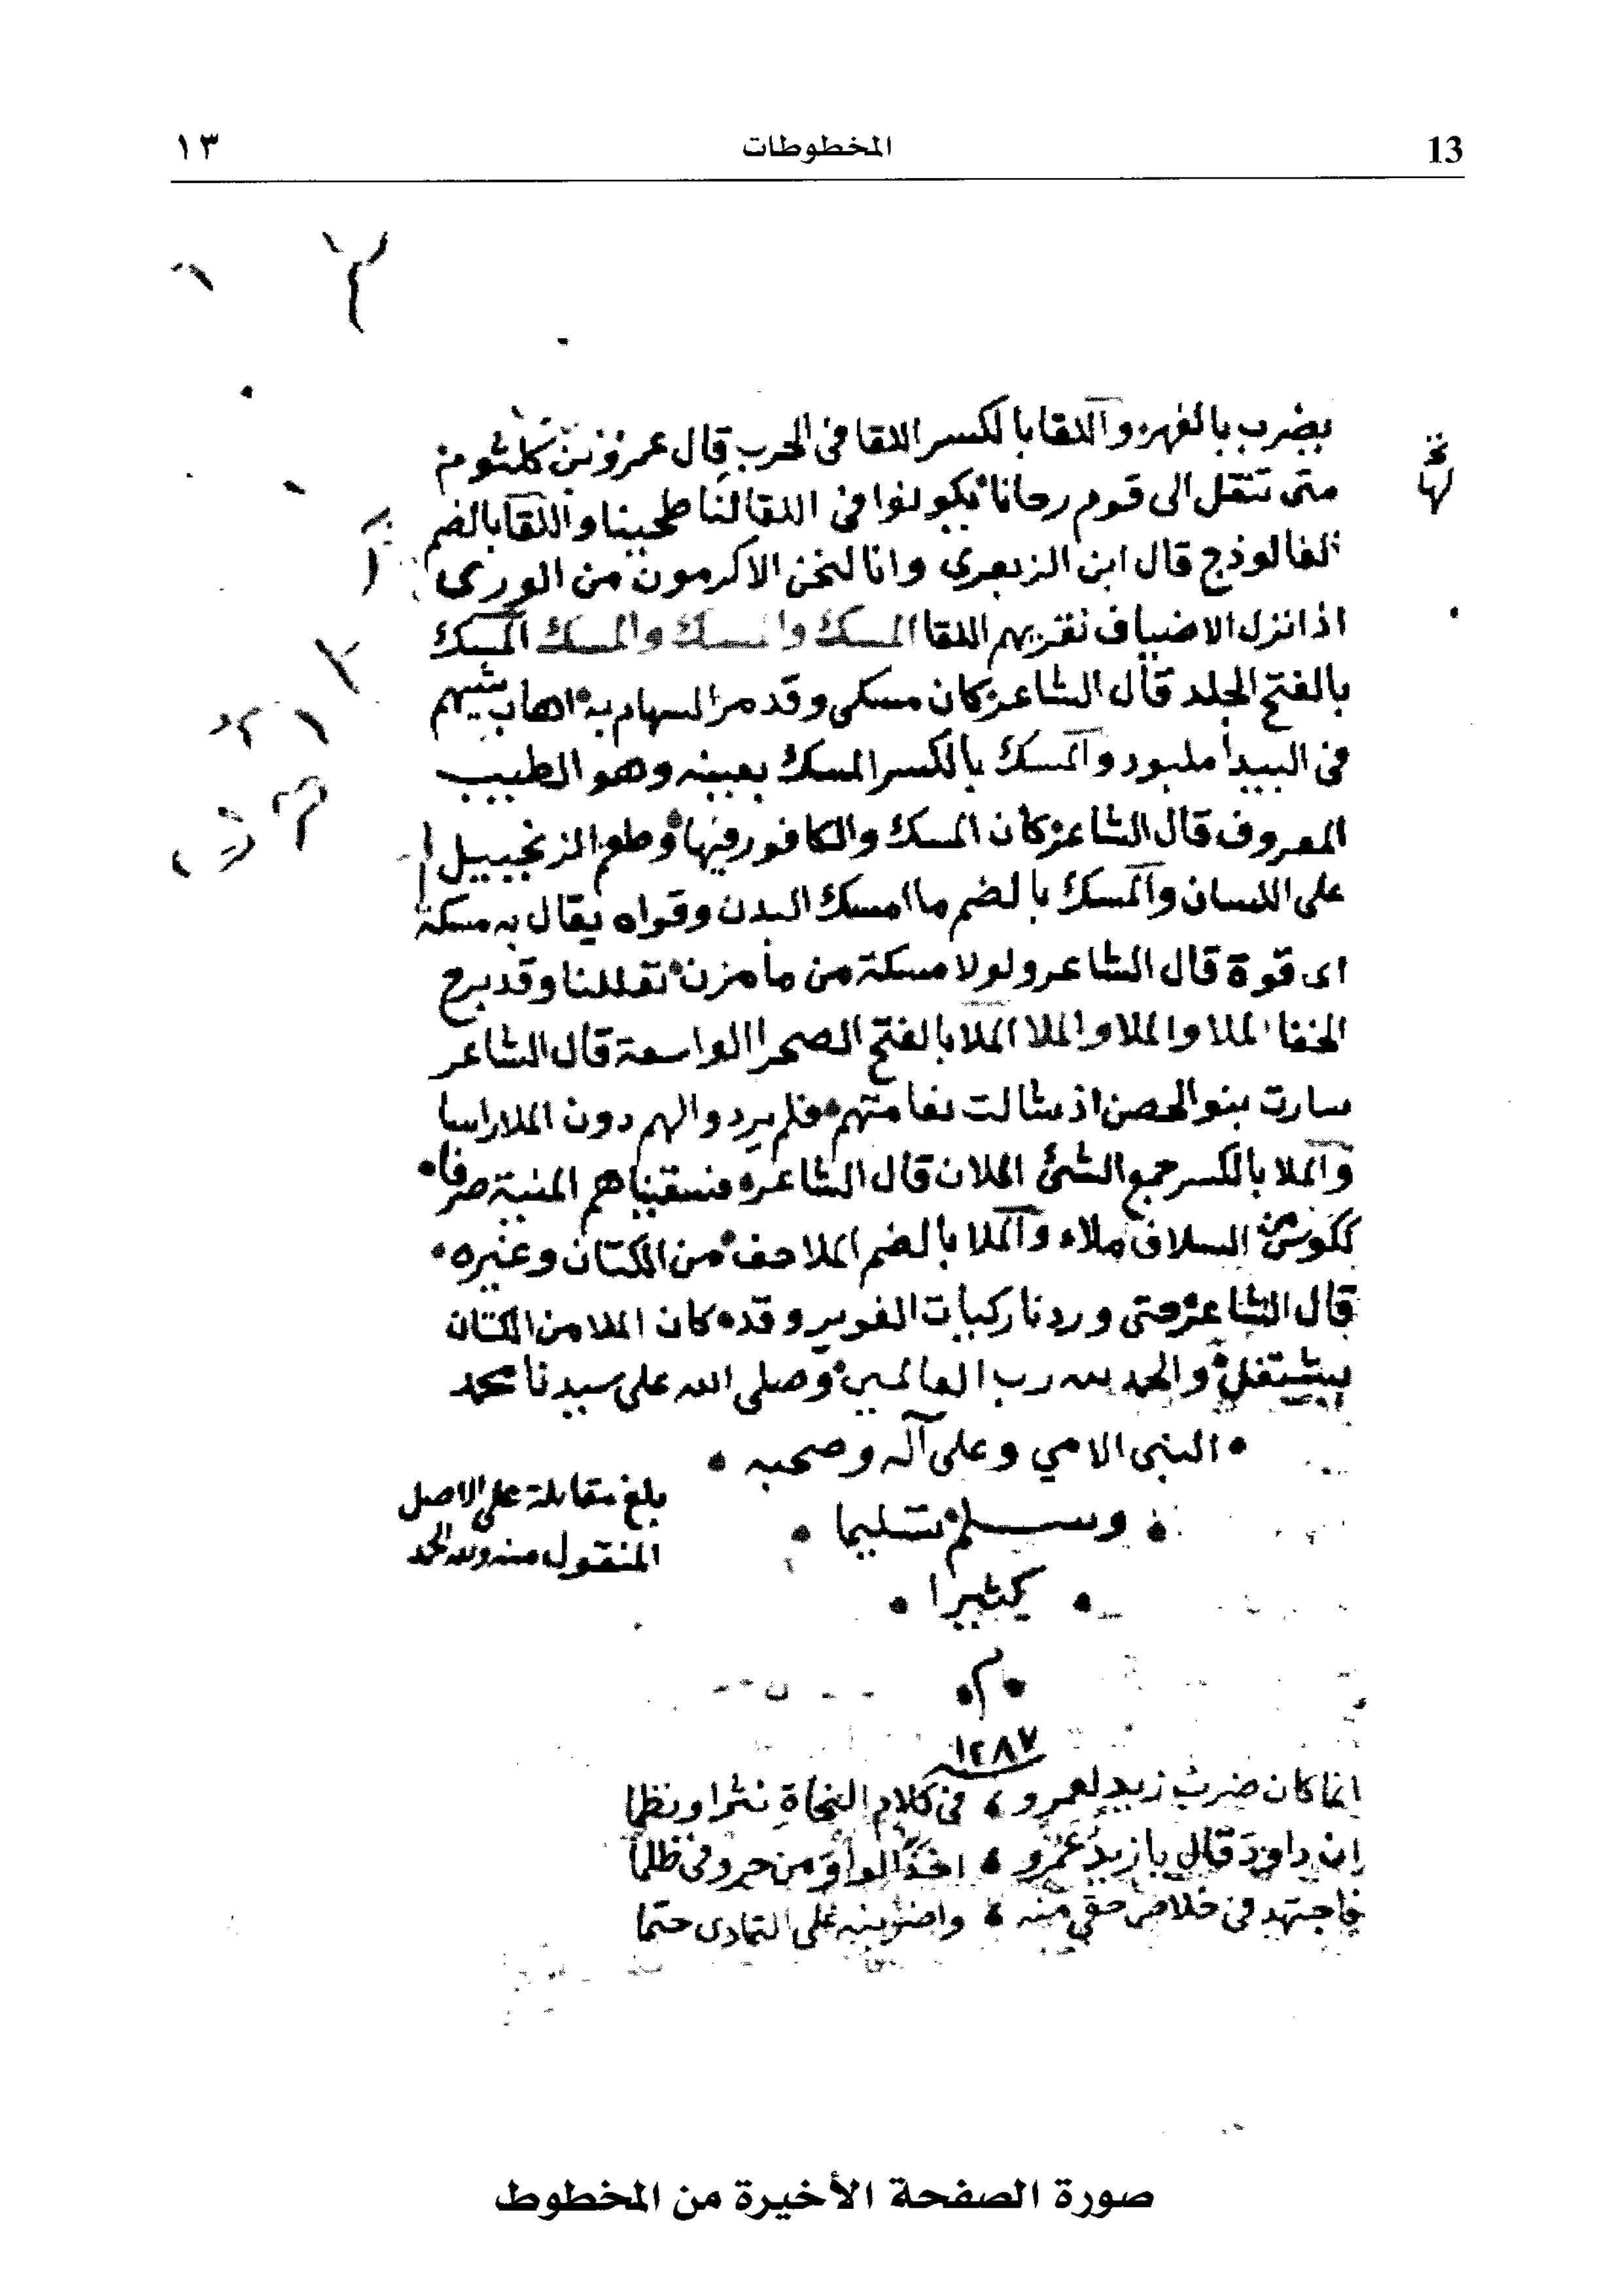 ١٣ المخطوطات 13
يضرب بالفهر واللقا بالكسر اللقا في الحرب قال عمرو بن كلثوم
متى ننقل الى قوم رحانا يكونوا في اللقا لنا طحينا واللقا بالضم
الفالوذج قال ابن الزبعرى وانا لنحن الاكرمون من الورى
اذا نزل الاضياف نقريهم اللقا المسك والمسك والمسك المسك
بالفتح الجلد قال الشاعر كان مسكى وقد مر السهام به اهاب
في البيدأ ملبود والمسك بالكسر المسك بعينه وهو الطيب
المعروف قال الشاعر كان المسك والكافور فيها وطعم الزنجبيل
على اللسان والمسك بالضم ما امسك البدن وقواه يقال به مسكة
اى قوة قال الشاعر ولولا مسكة من مأ مزن تقللنا وقد برح
الخفا الملا والملا والملا الملا بالفتح الصحرا الواسعة قال الشاعر
سارت بنو الحصن اذ شالت نعامتهم فلم يردوا لهم دون الملا راسا
والملا بالكسر جمع الشئ الملان قال الشاعر فسقيناهم المنية صرفا
ككوس من السلاف ملاء والملا بالضم الملاحف من الكتان وغيره
قال الشاعر حتى وردنا ركيات الغوير وقد كان الملا من الكتان
يشتعل والحمد لله رب العالمين وصلى الله على سيدنا محمد
النبى الامي وعلى آله وصحبه
وسلم تسليما
كثيرا
م
١٢٨٧
بلغ مقابلة على الاصل
المنقول منه ولله الحمد
انما كان ضرب زيد لعمرو في كلام النحاة نثرا ونظما
ان داود قال يا زيد عمرو اخذ الواو من حروفى ظلما
فاجتهد في خلاص حقي منه واضربنه على التمادى حتما
صورة الصفحة الأخيرة من المخطوط